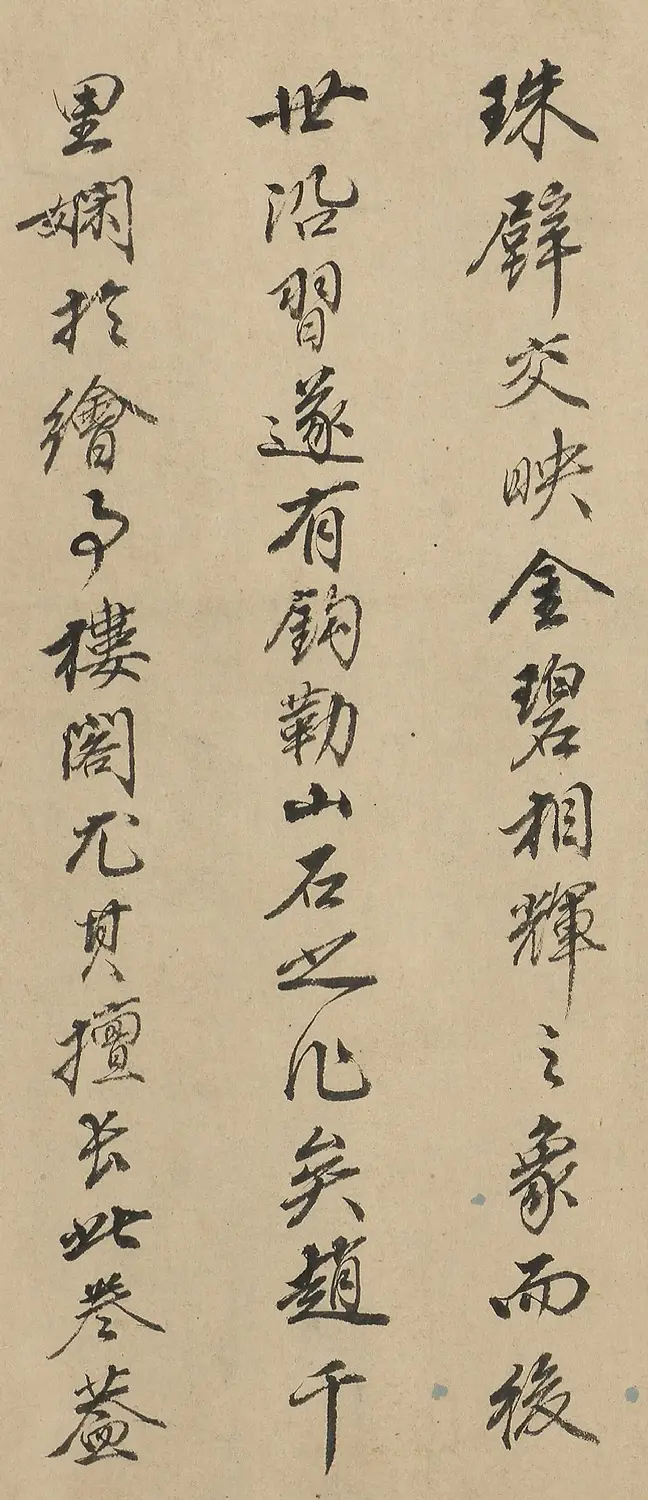 珠璧交映金碧相輝之象而後
世沿習遂有鈎勒山石之作矣趙千
里嫻於繪事樓閣尤其擅長此卷蓋